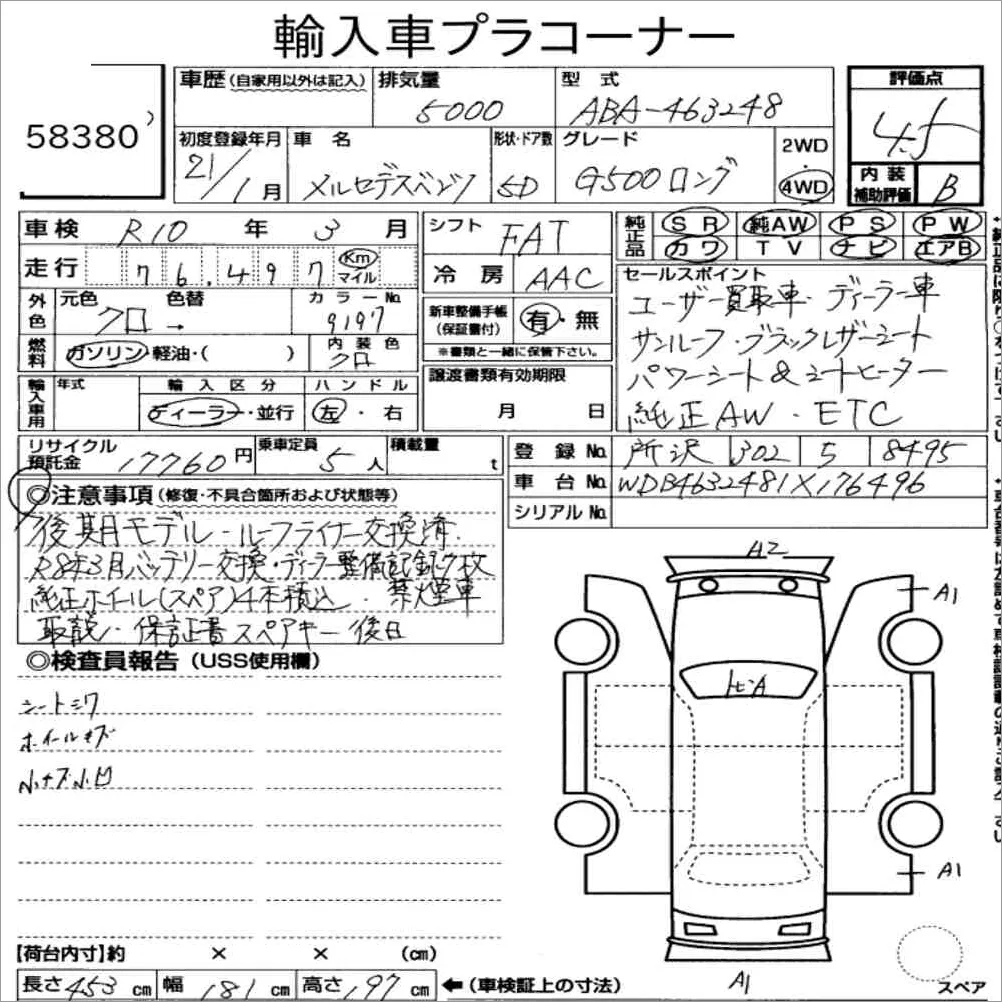 輸入車プラコーナー
58380
車歴(自家用以外は記入) 排気量 5000 型式 ABA-463248
評価点 4.5
初度登録年月 21/1月 車名 メルセデスベンツ 形状・ドア数 5D グレード G500ロング 2WD 4WD
内装補助評価 B
車検 R10年3月
走行 76,497 Km マイル
シフト FAT
冷房 AAC
純正品 SR 純AW PS PW
カワ TV ナビ エアB
外色 元色 クロ → 色替 カラーNo. 9197
燃料 ガソリン・軽油・( ) 内装色 クロ
新車整備手帳(保証書付) 有・無
※書類と一緒に保管下さい。
セールスポイント
ユーザー買取車・ディーラー車
サンルーフ・ブラックレザーシート
パワーシート&シートヒーター
純正AW・ETC
輸入車用 年式 輸入区分 ディーラー・並行 ハンドル 左・右
譲渡書類有効期限 月 日
リサイクル預託金 17760円 乗車定員 5人 積載量 t
登録No. 所沢 302 5 8495
車台No. WDB4632481X176496
シリアルNo.
◎注意事項(修復・不具合箇所および状態等)
後期モデル・ルーフライナー交換済
R8年3月バッテリー交換・ディーラー整備記録7枚
純正ホイール(スペア)4本積込・禁煙車
取説・保証書スペアキー後日
◎検査員報告(USS使用欄)
シートシワ
ホイールキズ
小キズ小凹
A2
A1
トビA
A1
A1
スペア
【荷台内寸】約 × × (cm)
長さ453cm 幅181cm 高さ197cm ←(車検証上の寸法)